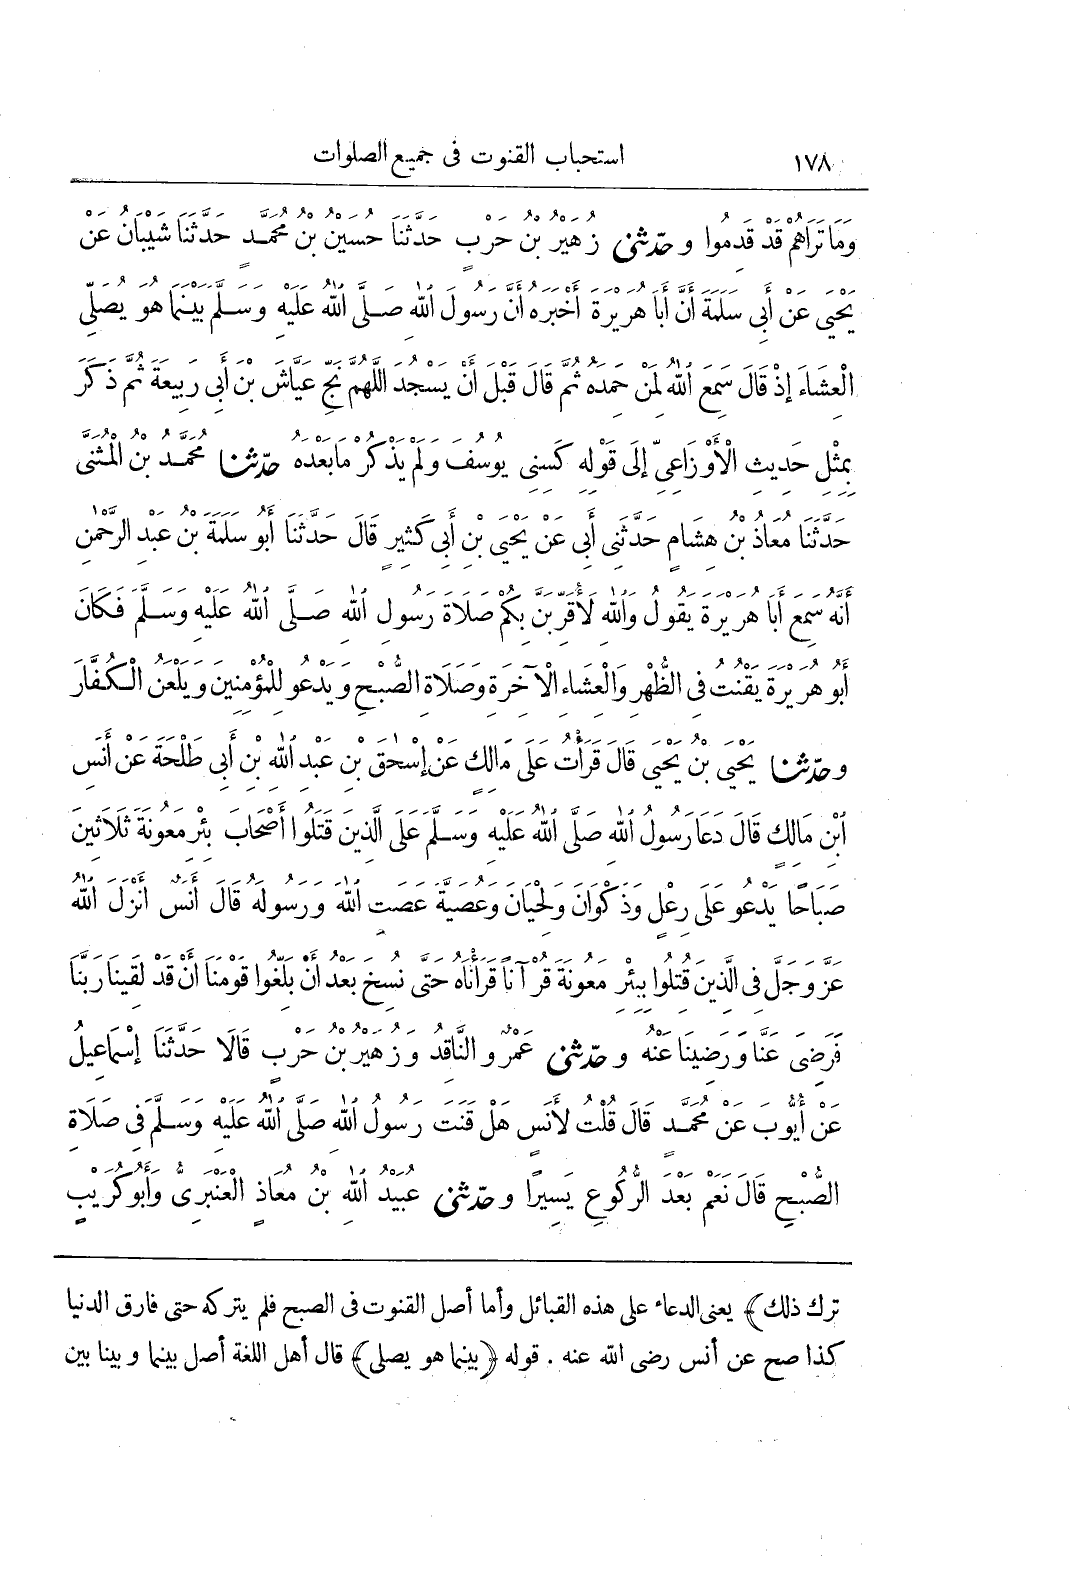 ١٧٨ استحباب القنوت فى جميع الصلوات
وَمَا تَرَاهُمْ قَدْ قَدِمُوا و حَدَّثَنِى زُهَيْرُ بْنُ حَرْبٍ حَدَّثَنَا حُسَيْنُ بْنُ مُحَمَّدٍ حَدَّثَنَا شَيْبَانُ عَنْ
يَحْيَى عَنْ أَبِى سَلَمَةَ أَنَّ أَبَا هُرَيْرَةَ أَخْبَرَهُ أَنَّ رَسُولَ اللهِ صَلَّى اللهُ عَلَيْهِ وَسَلَّمَ بَيْنَمَا هُوَ يُصَلِّى
الْعِشَاءَ إِذْ قَالَ سَمِعَ اللهُ لِمَنْ حَمِدَهُ ثُمَّ قَالَ قَبْلَ أَنْ يَسْجُدَ اللَّهُمَّ نَجِّ عَيَّاشَ بْنَ أَبِى رَبِيعَةَ ثُمَّ ذَكَرَ
بِمِثْلِ حَدِيثِ الْأَوْزَاعِىِّ إِلَى قَوْلِهِ كَسِنِى يُوسُفَ وَلَمْ يَذْكُرْ مَا بَعْدَهُ حَدَّثَنَا مُحَمَّدُ بْنُ الْمُثَنَّى
حَدَّثَنَا مُعَاذُ بْنُ هِشَامٍ حَدَّثَنِى أَبِى عَنْ يَحْيَى بْنِ أَبِى كَثِيرٍ قَالَ حَدَّثَنَا أَبُو سَلَمَةَ بْنُ عَبْدِ الرَّحْمٰنِ
أَنَّهُ سَمِعَ أَبَا هُرَيْرَةَ يَقُولُ وَاللهِ لَأُقَرِّبَنَّ بِكُمْ صَلَاةَ رَسُولِ اللهِ صَلَّى اللهُ عَلَيْهِ وَسَلَّمَ فَكَانَ
أَبُو هُرَيْرَةَ يَقْنُتُ فِى الظُّهْرِ وَالْعِشَاءِ الْآخِرَةِ وَصَلَاةِ الصُّبْحِ وَيَدْعُو لِلْمُؤْمِنِينَ وَيَلْعَنُ الْكُفَّارَ
و حَدَّثَنَا يَحْيَى بْنُ يَحْيَى قَالَ قَرَأْتُ عَلَى مَالِكٍ عَنْ إِسْحٰقَ بْنِ عَبْدِ اللهِ بْنِ أَبِى طَلْحَةَ عَنْ أَنَسِ
ابْنِ مَالِكٍ قَالَ دَعَا رَسُولُ اللهِ صَلَّى اللهُ عَلَيْهِ وَسَلَّمَ عَلَى الَّذِينَ قَتَلُوا أَصْحَابَ بِئْرِ مَعُونَةَ ثَلَاثِينَ
صَبَاحًا يَدْعُو عَلَى رِعْلٍ وَذَكْوَانَ وَلِحْيَانَ وَعُصَيَّةَ عَصَتِ اللهَ وَرَسُولَهُ قَالَ أَنَسٌ أَنْزَلَ اللهُ
عَزَّ وَجَلَّ فِى الَّذِينَ قُتِلُوا بِبِئْرِ مَعُونَةَ قُرْآنًا قَرَأْنَاهُ حَتَّى نُسِخَ بَعْدُ أَنْ بَلِّغُوا قَوْمَنَا أَنْ قَدْ لَقِينَا رَبَّنَا
فَرَضِىَ عَنَّا وَرَضِينَا عَنْهُ و حَدَّثَنِى عَمْرٌو النَّاقِدُ وَزُهَيْرُ بْنُ حَرْبٍ قَالَا حَدَّثَنَا إِسْمَاعِيلُ
عَنْ أَيُّوبَ عَنْ مُحَمَّدٍ قَالَ قُلْتُ لِأَنَسٍ هَلْ قَنَتَ رَسُولُ اللهِ صَلَّى اللهُ عَلَيْهِ وَسَلَّمَ فِى صَلَاةِ
الصُّبْحِ قَالَ نَعَمْ بَعْدَ الرُّكُوعِ يَسِيرًا و حَدَّثَنِى عُبَيْدُ اللهِ بْنُ مُعَاذٍ الْعَنْبَرِىُّ وَأَبُو كُرَيْبٍ
ترك ذلك﴾ يعنى الدعاء على هذه القبائل وأما أصل القنوت فى الصبح فلم يتركه حتى فارق الدنيا
كذا صح عن أنس رضى الله عنه . قوله ﴿بينما هو يصلى﴾ قال أهل اللغة أصل بينما و بينا بين